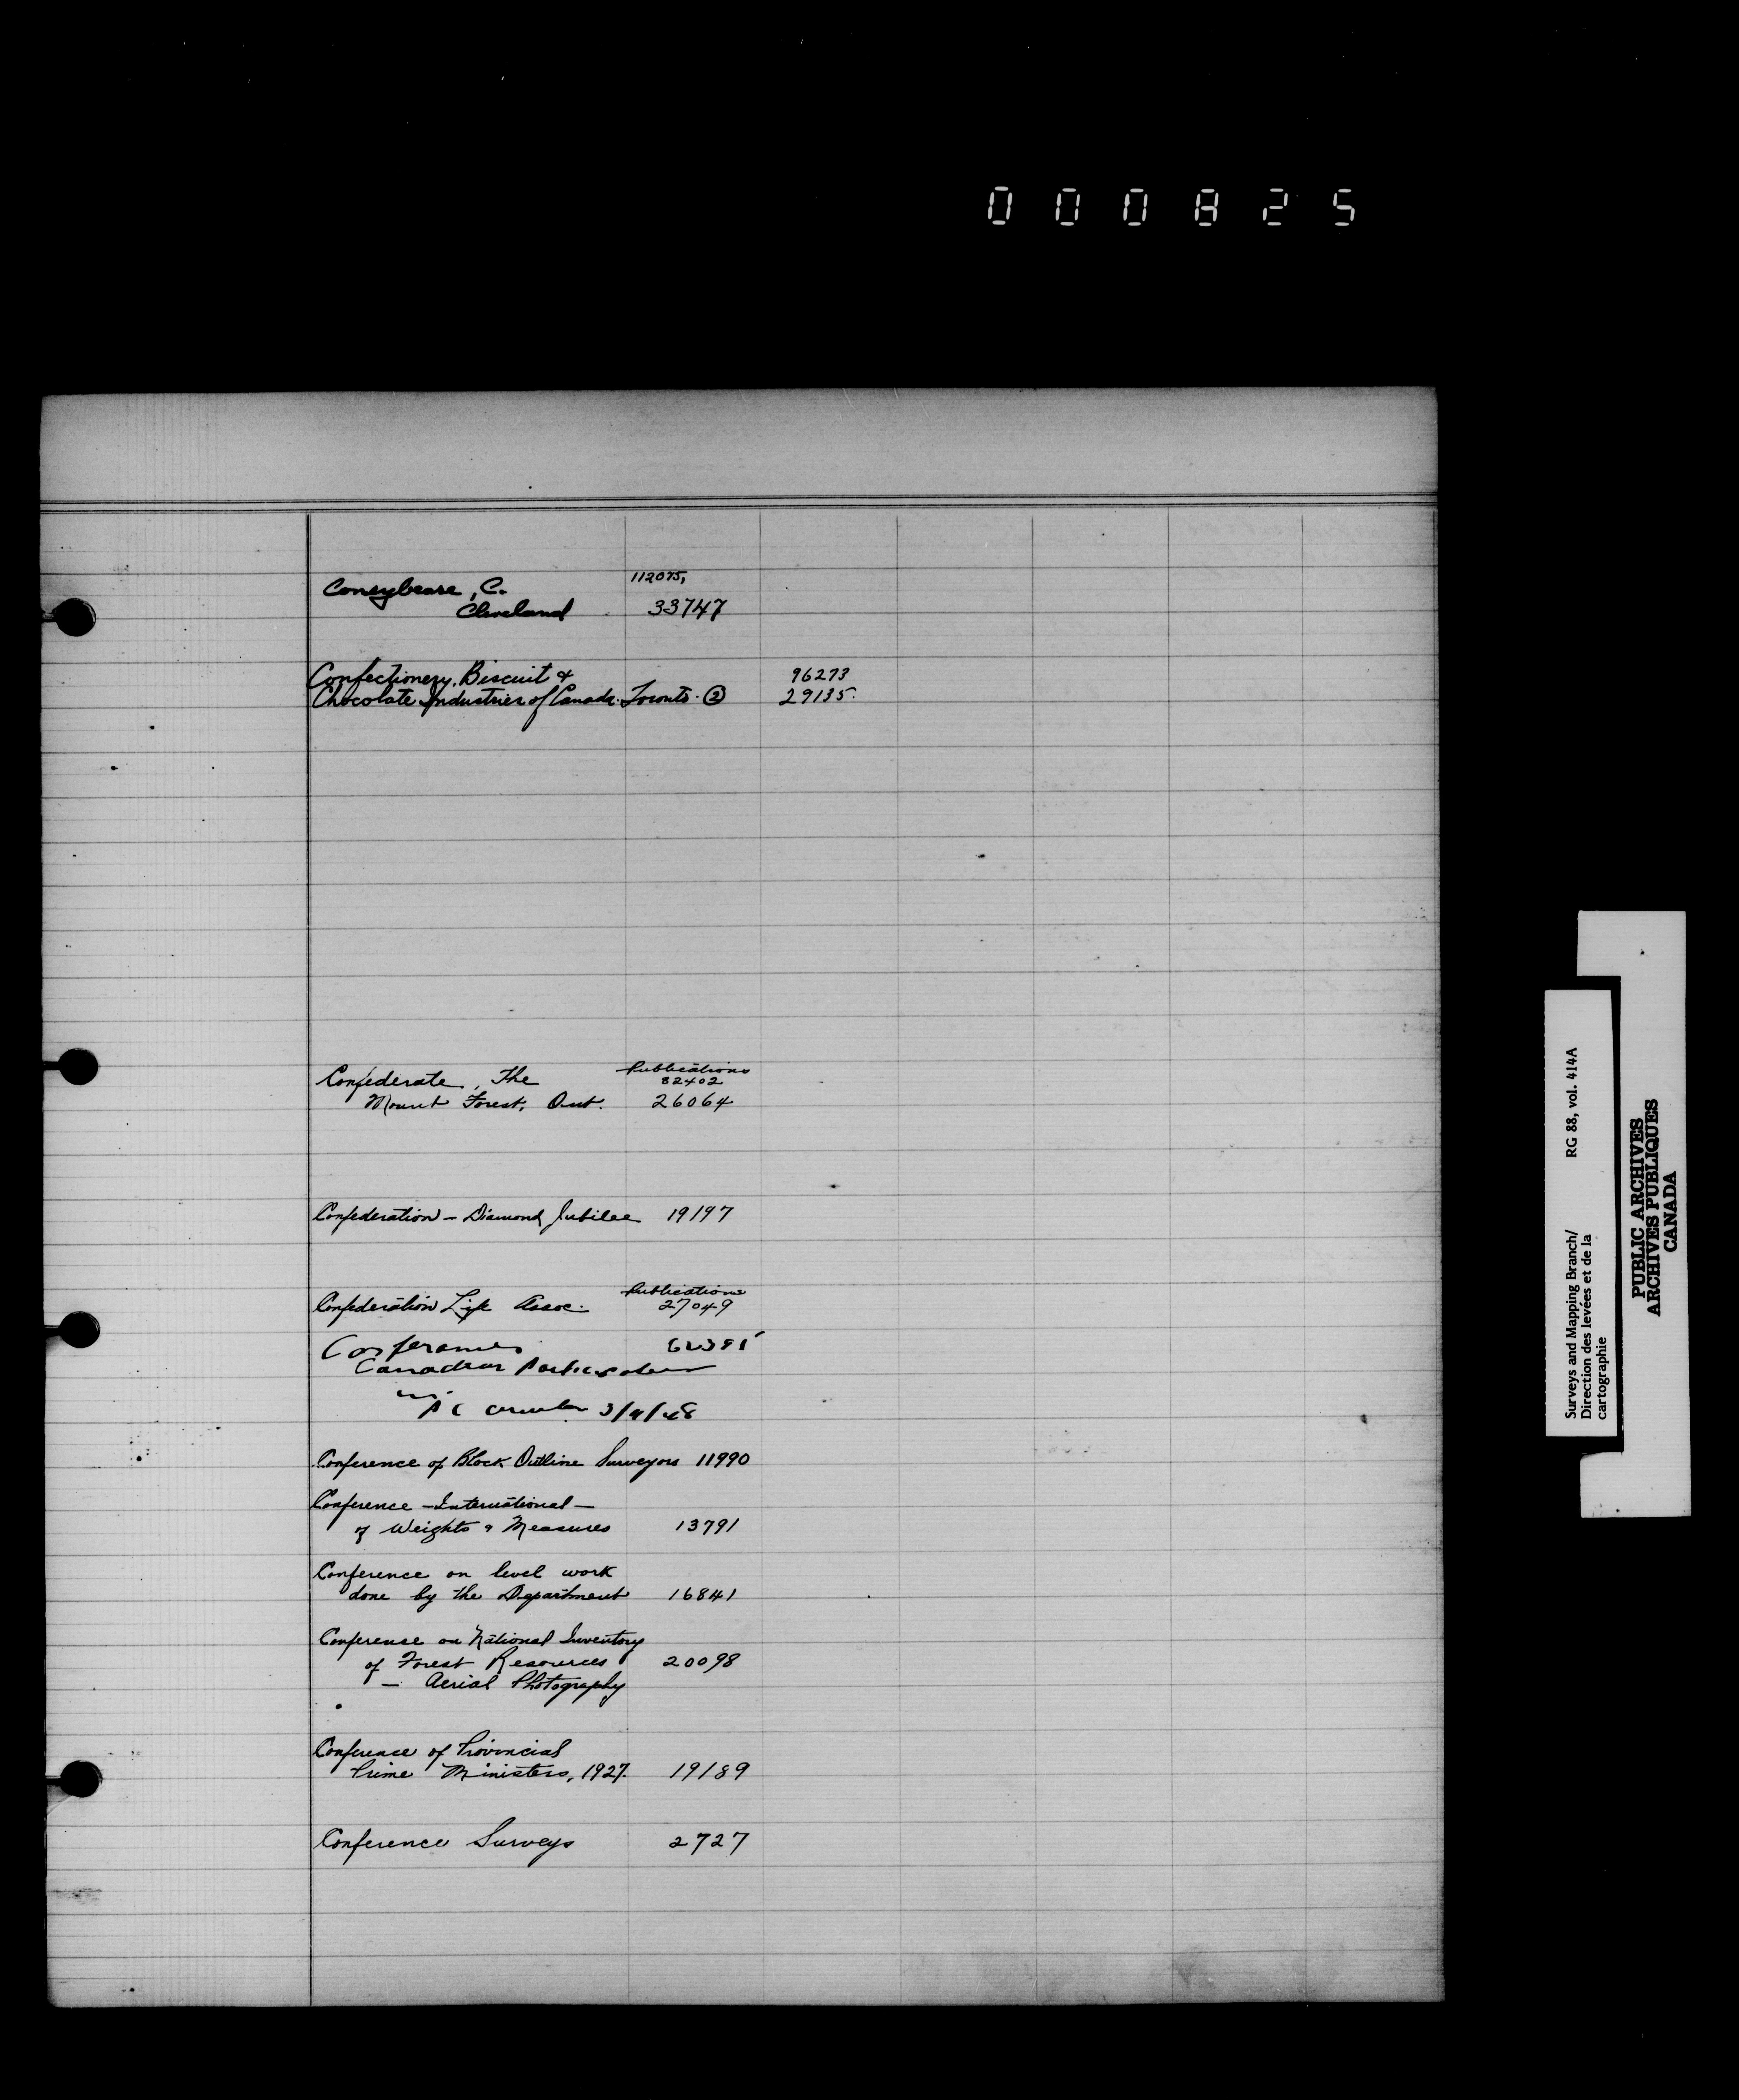 000825
Coneybeare, C. 112075,
Cleveland 33747
Confectionery, Biscuit & 96273
Chocolate Industries of Canada. Toronto. ② 29135.
Confederate, The Publications 82402
Mount Forest, Ont. 26064
Confederation - Diamond Jubilee 19197
Publications
Confederation Life Assoc. 27049
Conferences
Canadian Participation
PC circular 3/4/48
Conference of Block Outline Surveyors 11990
Conference - International -
of Weights & Measures 13791
Conference on level work
done by the Department 16841
Conference on National Inventory
of Forest Resources 20098
- Aerial Photography
Conference of Provincial
Prime Ministers, 1927. 19189
Conference Surveys 2727
Surveys and Mapping Branch/ RG 88, vol. 414A
Direction des levées et de la
cartographie
PUBLIC ARCHIVES
ARCHIVES PUBLIQUES
CANADA